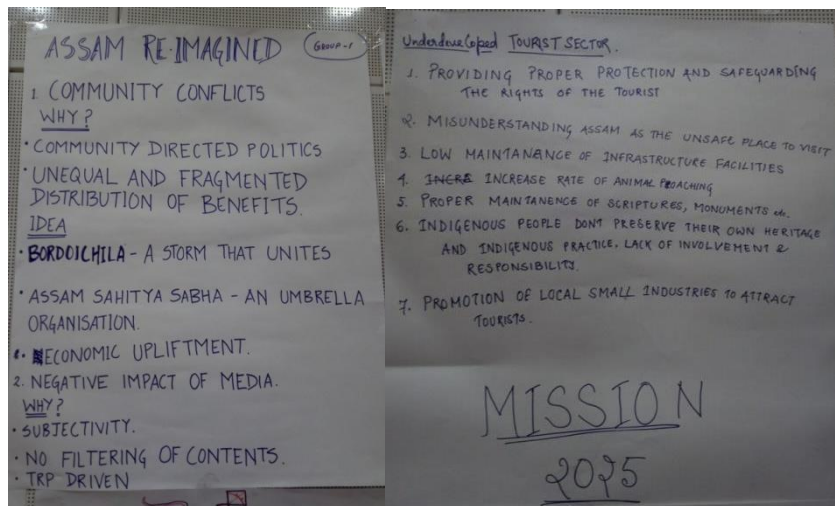 ASSAM RE-IMAGINED
GROUP-1
1. COMMUNITY CONFLICTS
WHY?
• COMMUNITY DIRECTED POLITICS
• UNEQUAL AND FRAGMENTED
DISTRIBUTION OF BENEFITS.
IDEA
• BORDOICHILA - A STORM THAT UNITES
• ASSAM SAHITYA SABHA - AN UMBRELLA
ORGANISATION.
• ECONOMIC UPLIFTMENT.
2. NEGATIVE IMPACT OF MEDIA.
WHY?
• SUBJECTIVITY.
• NO FILTERING OF CONTENTS.
• TRP DRIVEN
Underdeveloped TOURIST SECTOR.
1. PROVIDING PROPER PROTECTION AND SAFEGUARDING
THE RIGHTS OF THE TOURIST
2. MISUNDERSTANDING ASSAM AS THE UNSAFE PLACE TO VISIT
3. LOW MAINTANANCE OF INFRASTRUCTURE FACILITIES
4. INCRE INCREASE RATE OF ANIMAL POACHING
5. PROPER MAINTANENCE OF SCRIPTURES, MONUMENTS etc.
6. INDIGENOUS PEOPLE DON'T PRESERVE THEIR OWN HERITAGE
AND INDIGENOUS PRACTICE, LACK OF INVOLVEMENT &
RESPONSIBILITY.
7. PROMOTION OF LOCAL SMALL INDUSTRIES TO ATTRACT
TOURISTS.
MISSION
2025